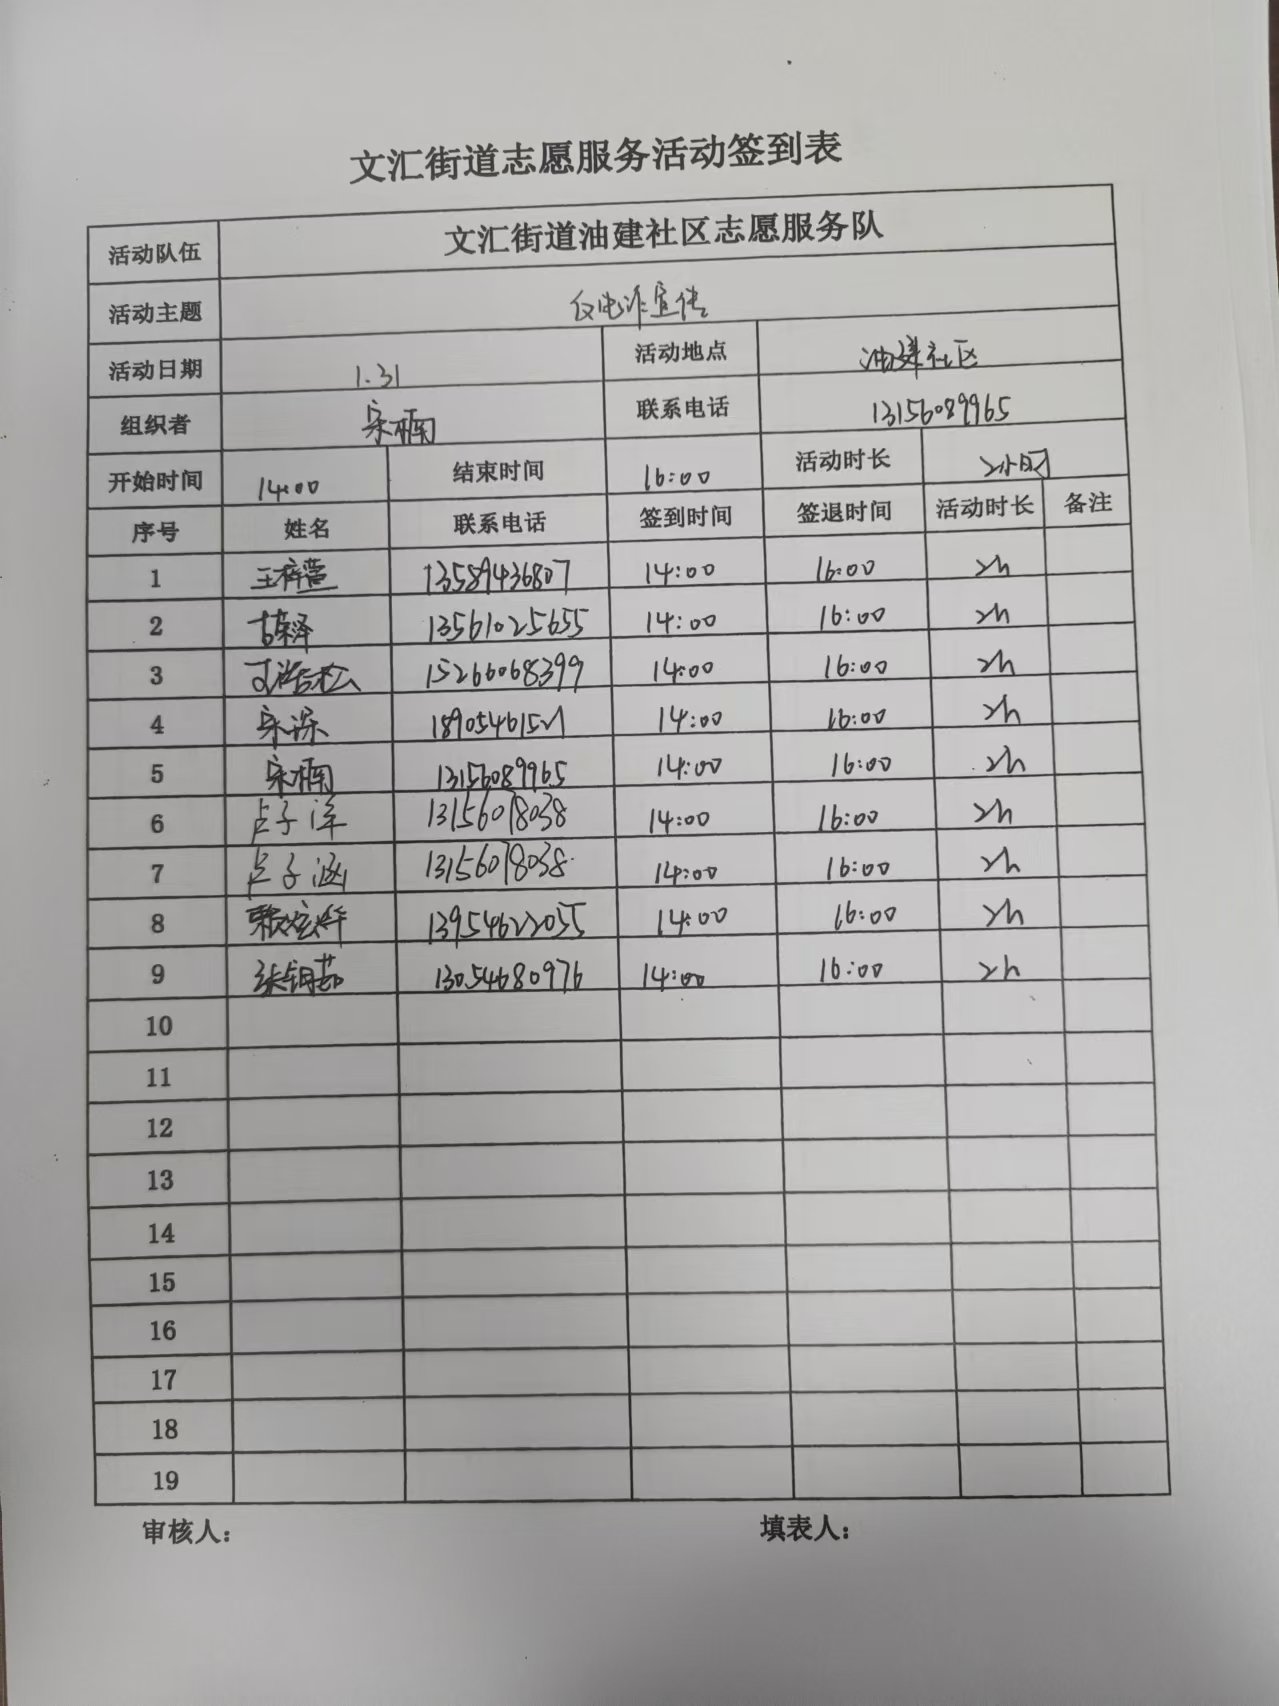 文汇街道志愿服务活动签到表
活动队伍 文汇街道油建社区志愿服务队
活动主题 反电诈宣传
活动日期 1.31 活动地点 油建社区
组织者 宋楠 联系电话 13156089965
开始时间 14:00 结束时间 16:00 活动时长 2小时
序号 姓名 联系电话 签到时间 签退时间 活动时长 备注
1 王梓萱 13589436807 14:00 16:00 2h
2 13561025655 14:00 16:00 2h
3 15266068399 14:00 16:00 2h
4 宋深 14:00 16:00 2h
5 宋楠 13156089965 14:00 16:00 2h
6 卢子洋 13156078038 14:00 16:00 2h
7 卢子涵 13156078038 14:00 16:00 2h
8 13954622055 14:00 16:00 2h
9 13054680976 14:00 16:00 2h
10
11
12
13
14
15
16
17
18
19
审核人： 填表人：